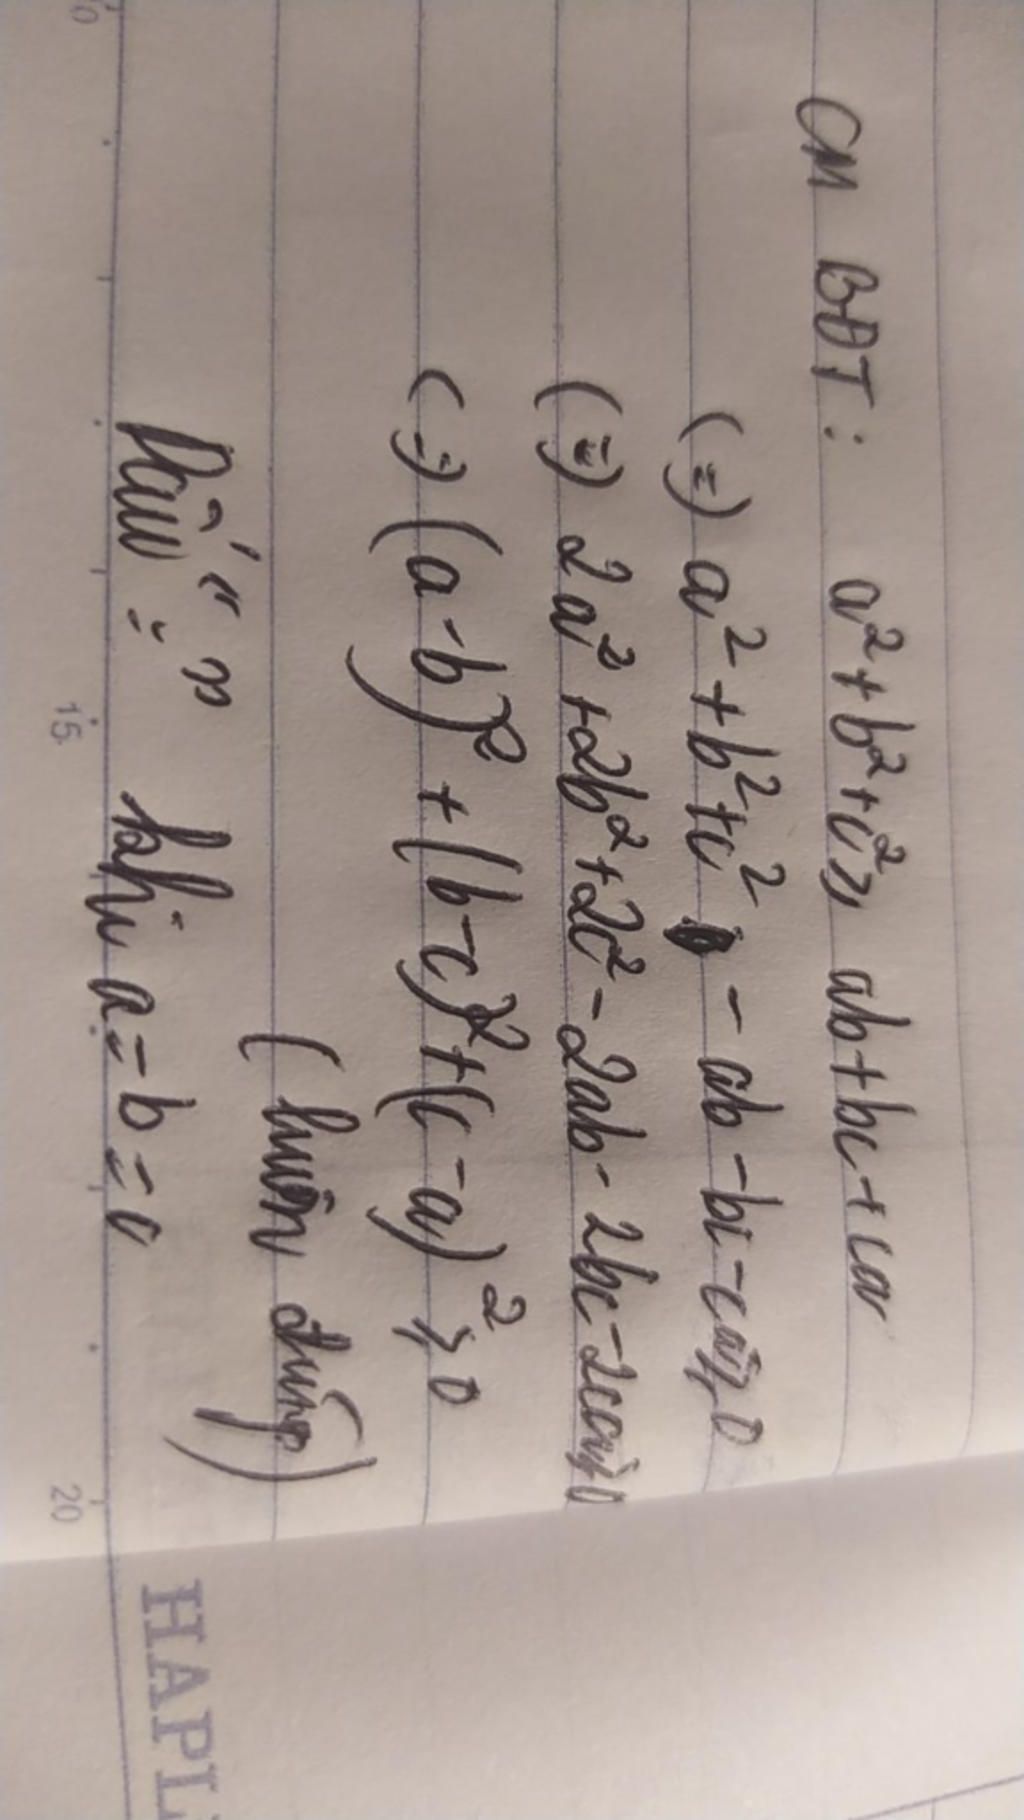 CM BĐT: a² + b² + c² ≥ ab + bc + ca
(=) a² + b² + c² - ab - bc - ca ≥ 0
(=) 2a² + 2b² + 2c² - 2ab - 2bc - 2ca ≥ 0
(=) (a-b)² + (b-c)² + (c-a)² ≥ 0
(luôn đúng)
Dấu "=" khi a = b = c
15
20
HAPL